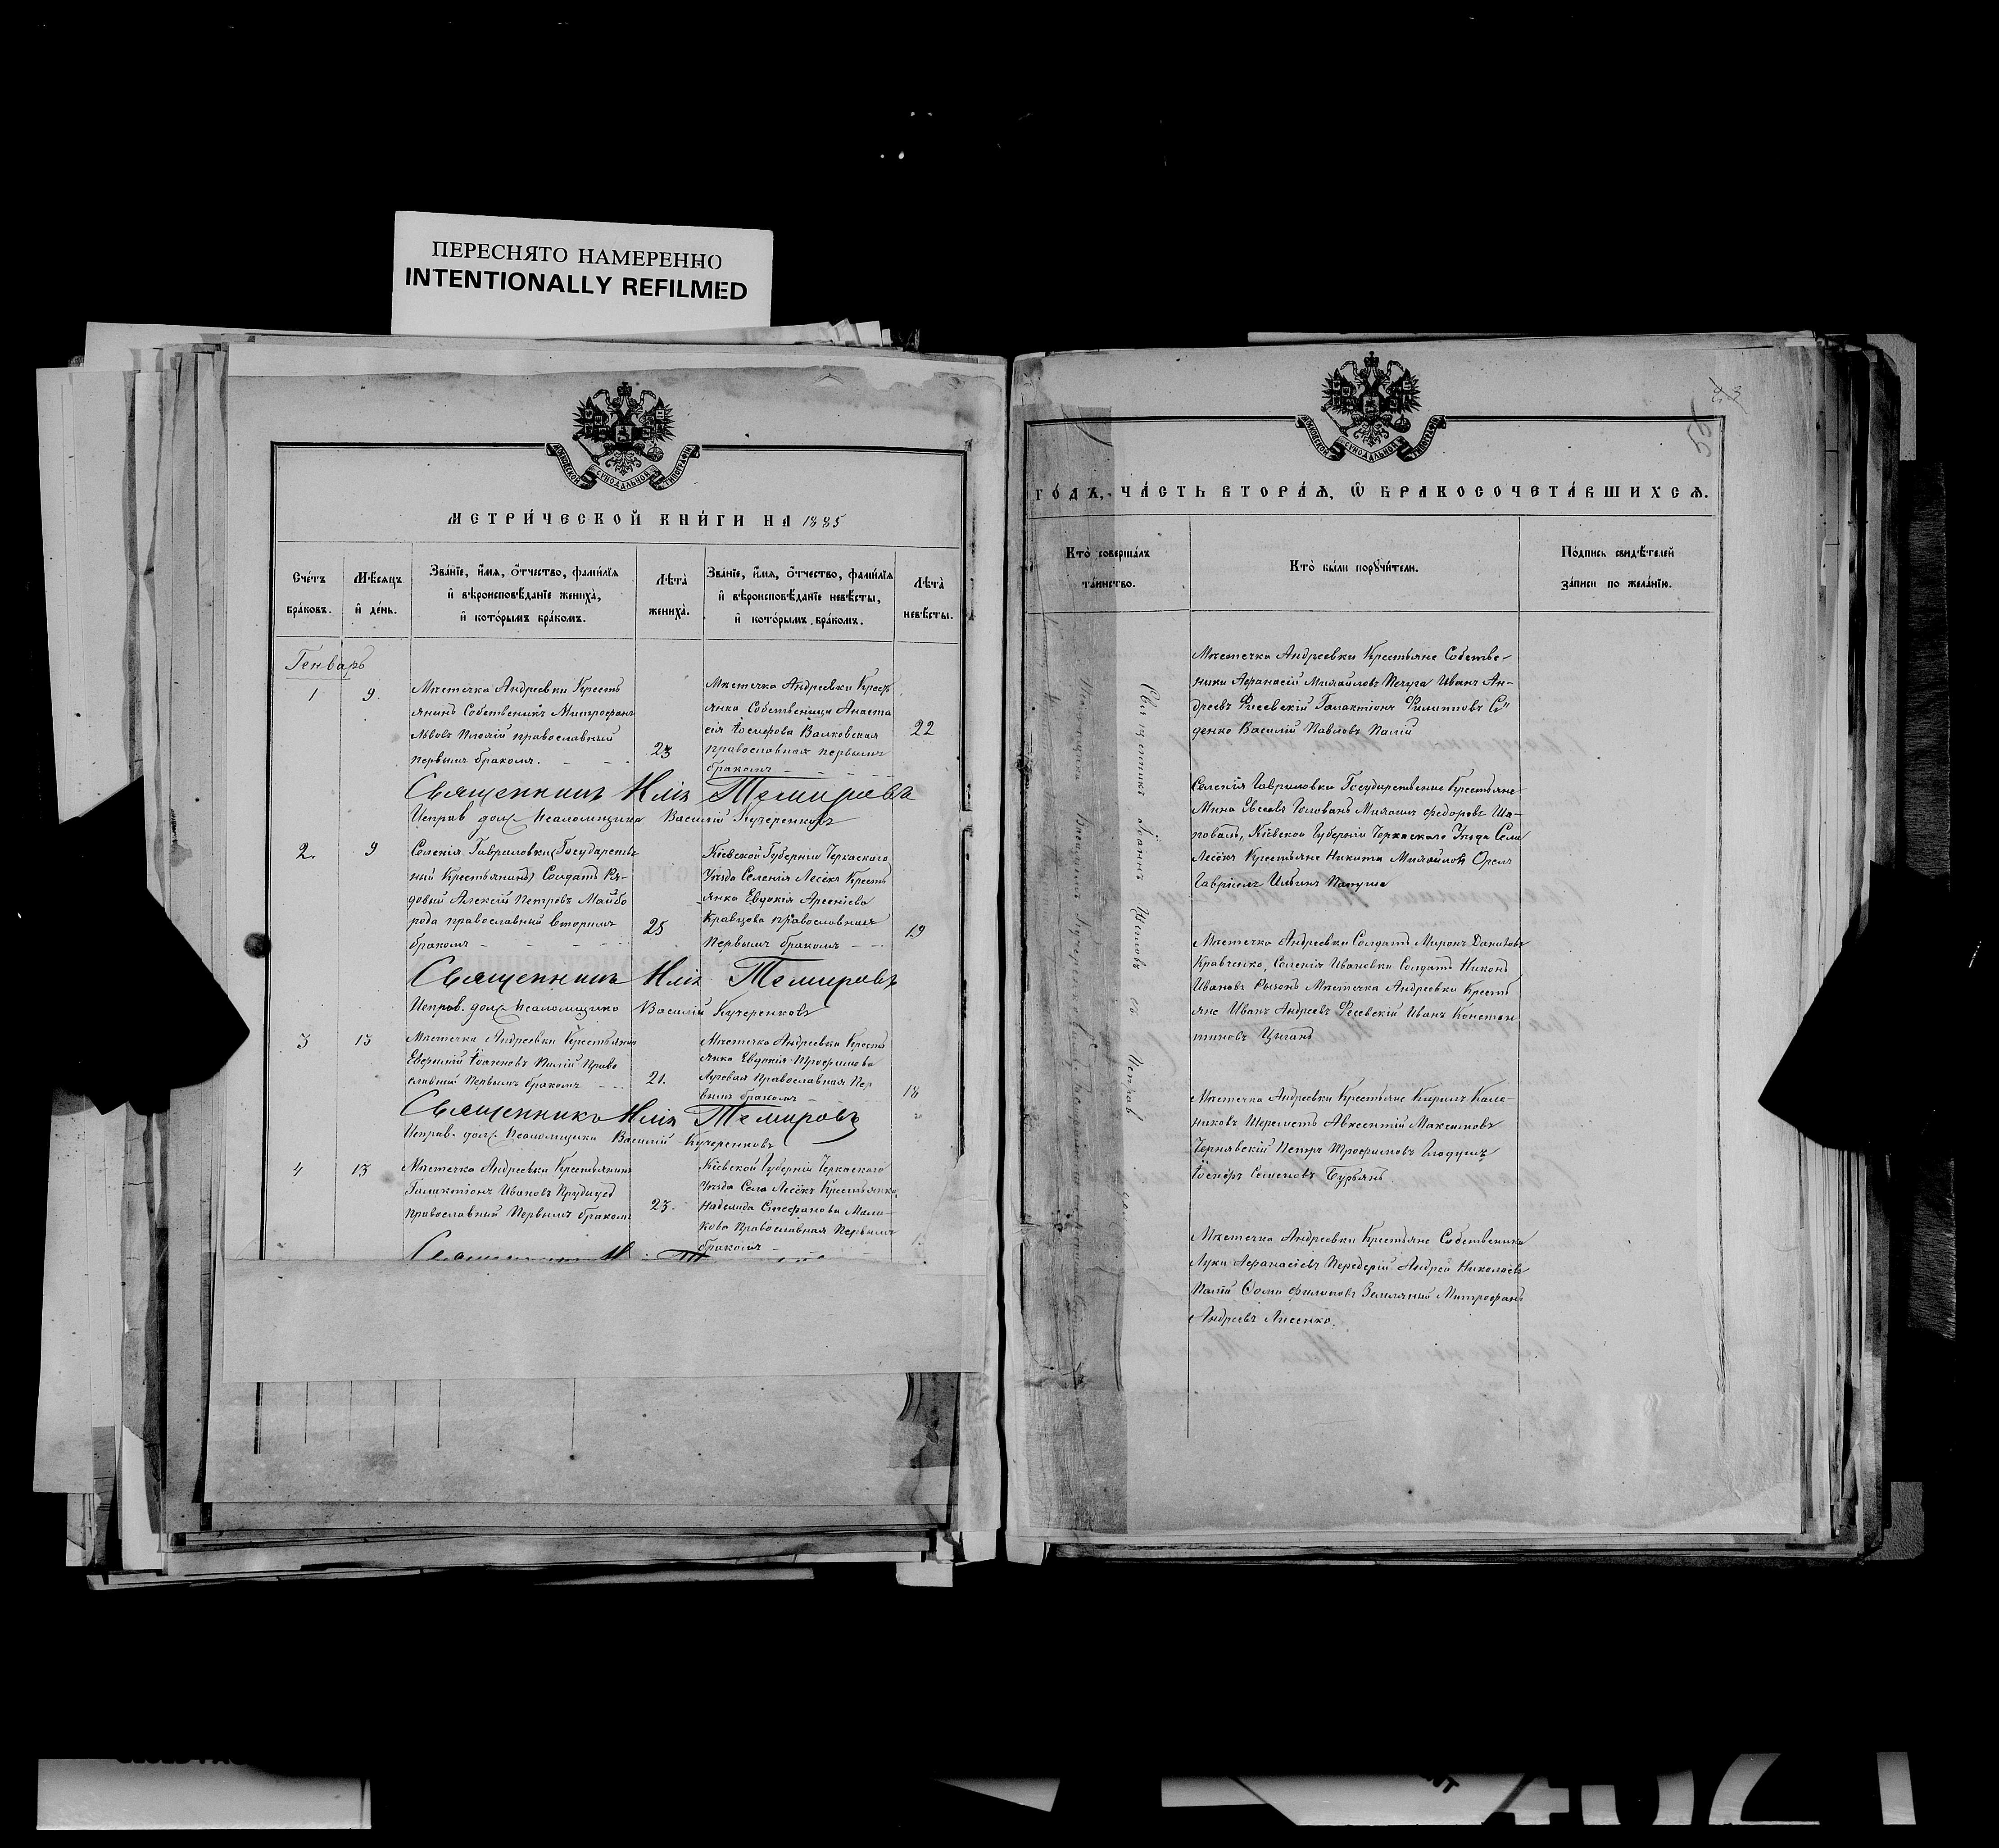 ПЕРЕСНЯТО НАМЕРЕННО
INTENTIONALLY REFILMED
МОСКОВСКОЙ СУНОДАЛЬНОЙ ТИПОГРАФІИ
МЕТРИ́ЧЕСКОЙ КНИ́ГИ НА 1885
Сче́тъ бра́ковъ.
Мѣ́сяцъ и҆ де́нь.
Зва́нїе, и҆́мя, ѻ҆́тчество, фами́лїя
и҆ вѣроисповѣ́данїе жениха̀,
и҆ кото́рымъ бра́комъ.
Лѣ́та̀ жениха̀.
Зва́нїе, и҆́мя, ѻ҆́тчество, фами́лїя
и҆ вѣроисповѣ́данїе невѣ́сты,
и҆ кото́рымъ бра́комъ.
Лѣ́та̀ невѣ́сты.
Генварь
1
9.
Мѣстечка Андреевки Кресть
янинъ Собственикъ Митрофанъ
Львовъ православный
первымъ бракомъ.
23
Мѣстечка Андреевки Крест
янка Собственица Анаста
сія Іосифова Валковская
православная первымъ
бракомъ
22
Священникъ Илія Темировъ
Исправ. долж. псаломщика Василій Кучеренковъ
2.
9
Селенія Гавриловки (Государствен
ный Крестьянинъ) Солдатъ Ря-
довый Алексій Петровъ Майбо
рода православный вторымъ
бракомъ
25
Кіевской Губерніи Черкаскаго
Уѣзда Селенія Лесёкъ Кресть
янка Евдокія Арсеніева
Кравцова православная
первымъ бракомъ
19
Священникъ Илія Темировъ
Исправ. долж. псаломщика Василій Кучеренковъ
3
13
Мѣстечка Андреевки Крестьянинъ
Евфимій Іоанновъ Палій Право
славный Первымъ бракомъ
21.
Мѣстечка Андреевки Кресть
янка Евдокія Трофимова
православная Пер
вымъ бракомъ
18
Священникъ Илія Темировъ
Исправ. долж. псаломщика Василій Кучеренковъ
4
13
Мѣстечка Андреевки Крестьянинъ
Галактіонъ Ивановъ
православный Первымъ бракомъ
23.
Кіевской Губерніи Черкаскаго
Уѣзда Села Лесёкъ Крестьянка
Надежда Стефанова Мали-
кова православная Первымъ
бракомъ
МОСКОВСКОЙ СУНОДАЛЬНОЙ ТИПОГРАФІИ
43
55
ГО́ДЪ, ЧА́СТЬ ВТОРА́Я, Ѡ БРАКОСОЧЕТА́ВШИХСЯ.
Кто̀ соверша́лъ та́инство.
Кто̀ бы́ли поручи́тели.
По́дпись свидѣ́телей за́писи по жела́нїю.
Священникъ Іоаннъ Щетовъ съ
Мѣстечка Андреевки Крестьяне Собстве-
ники Афанасій Михайловъ Печуга Иванъ Ан-
дреевъ Фесевскій Галактіонъ Филиповъ Си
денко Василій Павловъ Палій
Селенія Гавриловки Государственые Крестьяне
Мина Евсеевъ Голованъ Михаилъ Федоровъ Ша-
повалъ, Кіевской Губерніи Черкаскаго Уѣзда Села
Лесёкъ Крестьяне Никита Михайловъ Орелъ
Гавріилъ Ильинъ Папуша
Мѣстечка Андреевки Солдатъ Миронъ Даниловъ
Кравченко, Селенія Ивановки Солдатъ Никонъ
Ивановъ Мѣстечка Андреевки Кресть
яне Иванъ Андреевъ Фесевскій Иванъ Констан
тиновъ Цыганъ
Мѣстечка Андреевки Крестьяне Кирилъ Кале-
никовъ Шереметъ Авксентій Максимовъ
Чернявскій Петръ Трофимовъ Гладунъ
Іосифъ Семеновъ Бурьянъ
Мѣстечка Андреевки Крестьяне Собственики
Лука Афанасіевъ Передерій Андрей Николаевъ
Палій Сома Филиповъ Земляный Митрофанъ
Андреевъ Лисенко.